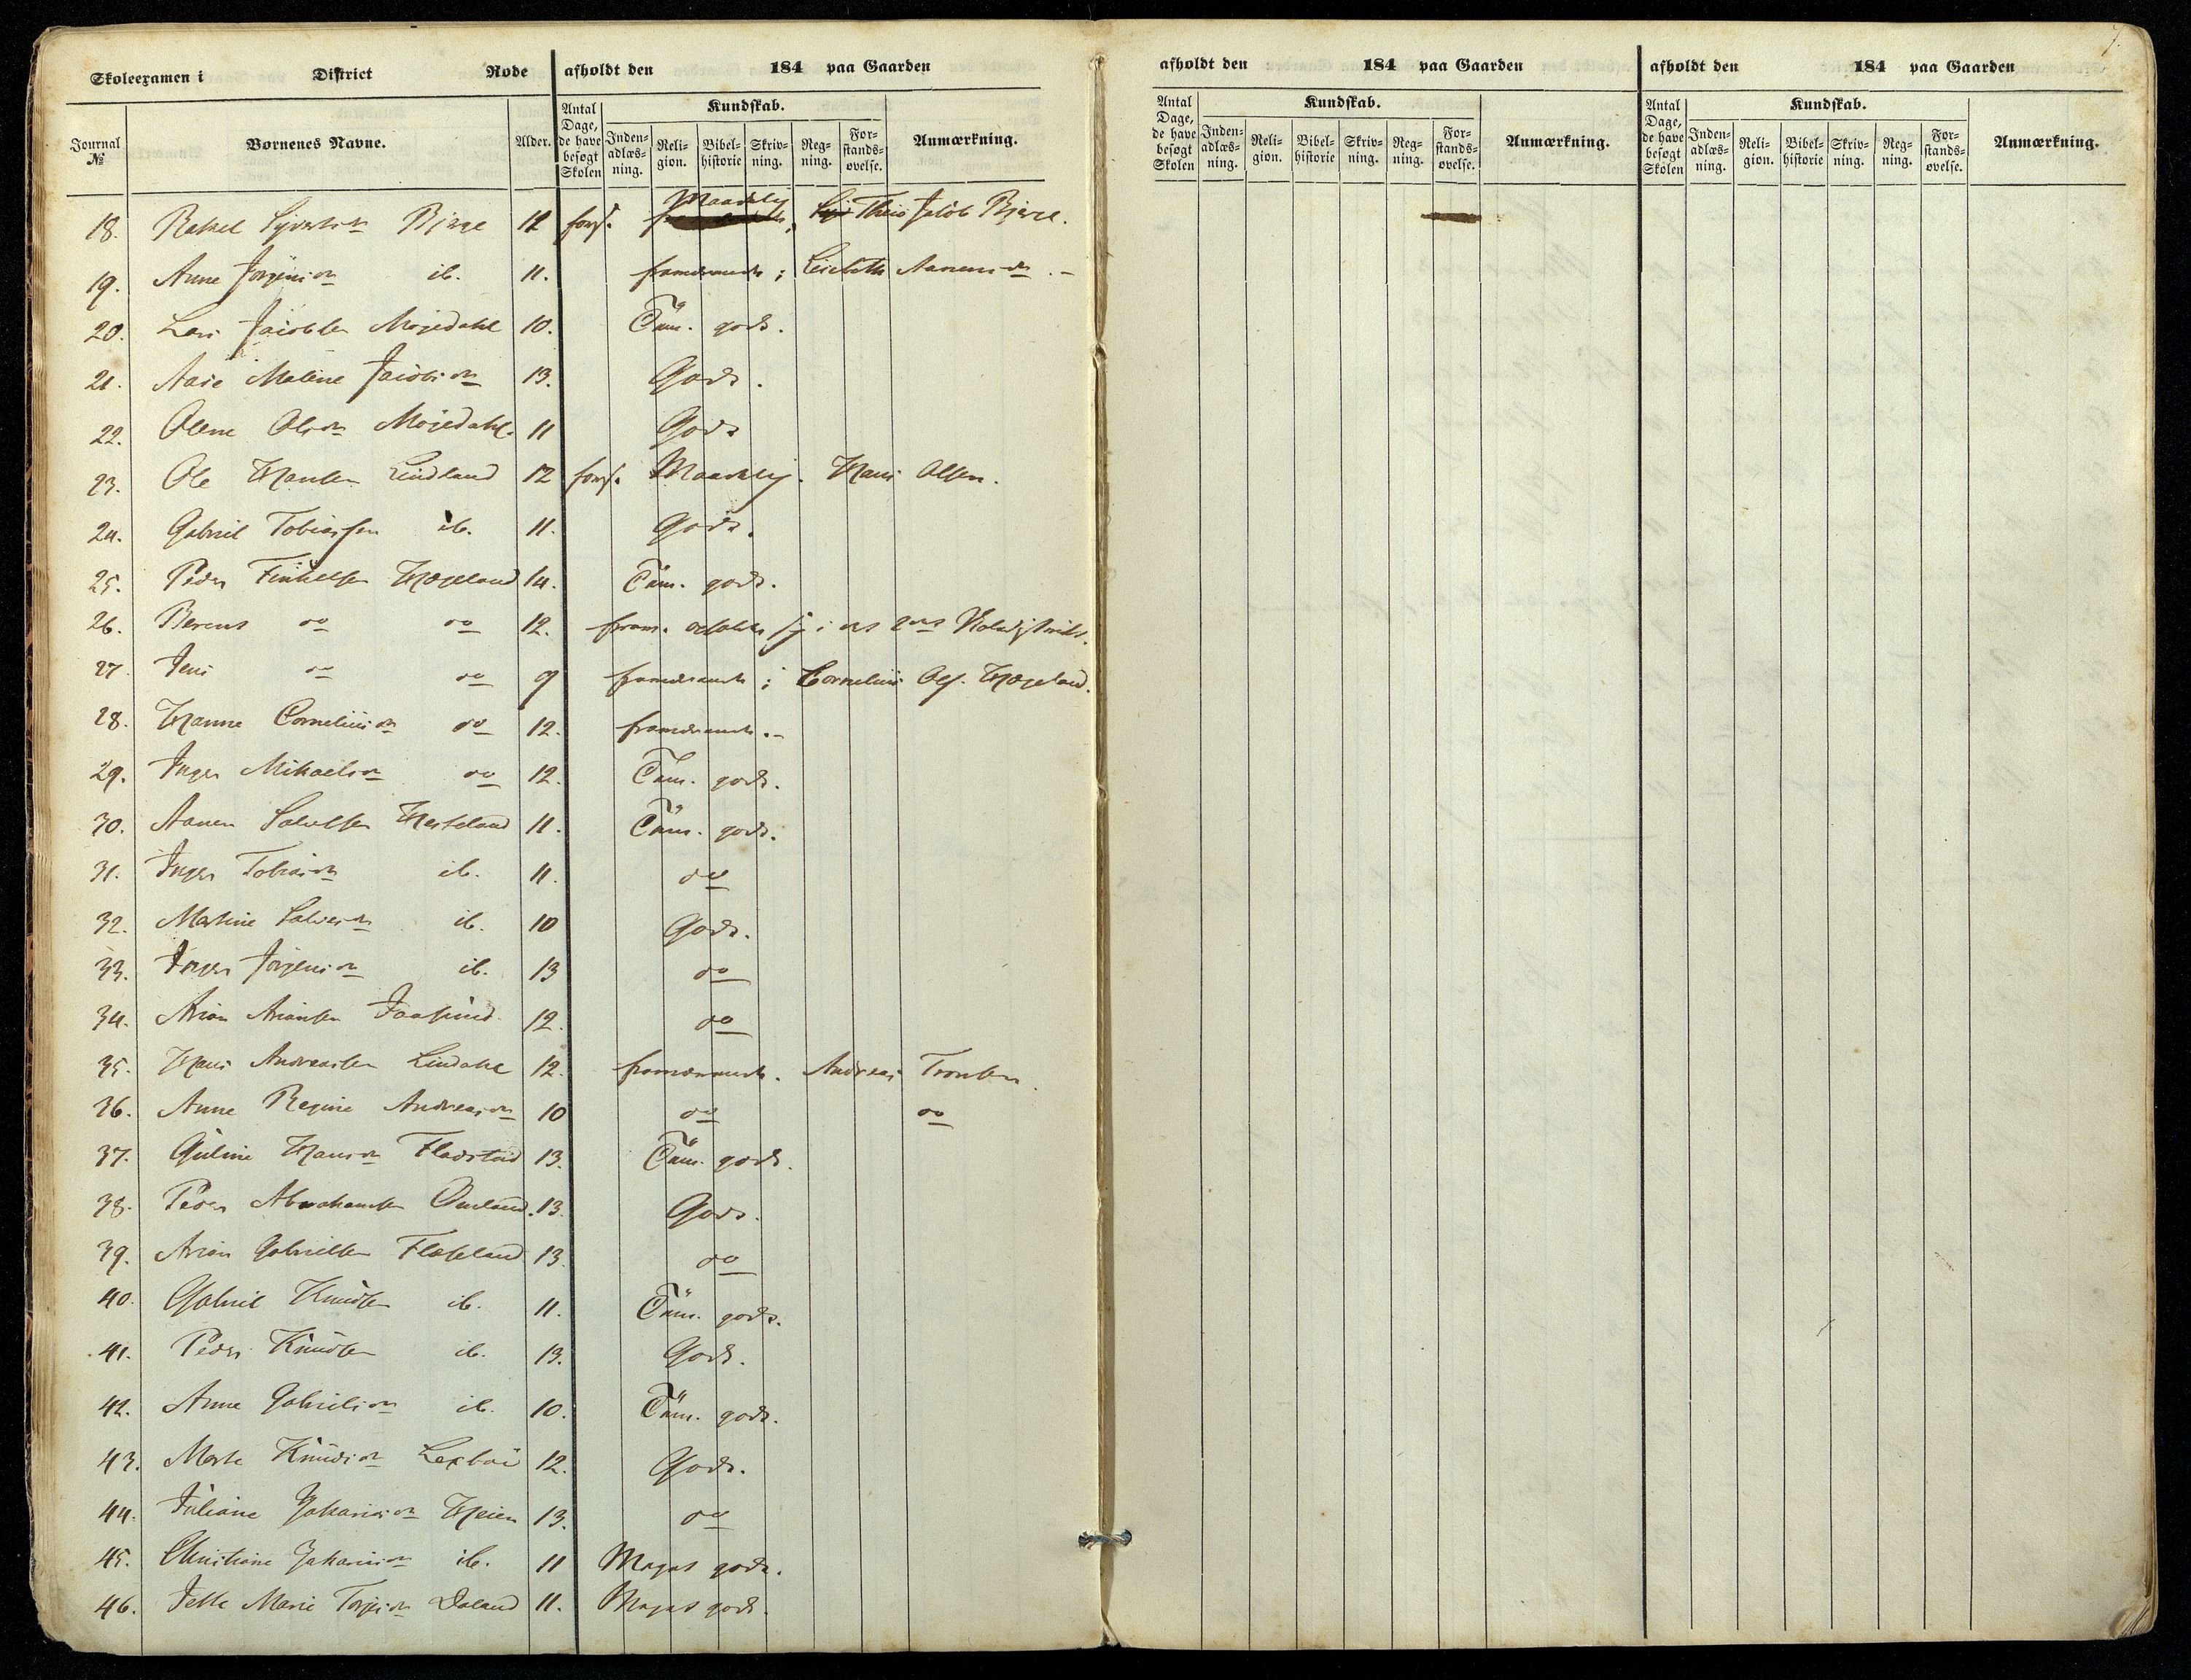 Skoleexamen i District Rode afholdt den 184 paa Gaarden
afholdt den 184 paa Gaarden afholdt den 184 paa Gaarden 7.
Journal № Børnenes Navne. Alder. Antal Dage, de have besøgt Skolen Kundskab. Inden-adlæs-ning. Reli-gion. Bibel-historie Skriv-ning. Reg-ning. For-stands-øvelse. Anmærkning.
Antal Dage, de have besøgt Skolen Kundskab. Inden-adlæs-ning. Reli-gion. Bibel-historie Skriv-ning. Reg-ning. For-stands-øvelse. Anmærkning.
Antal Dage, de have besøgt Skolen Kundskab. Inden-adlæs-ning. Reli-gion. Bibel-historie Skriv-ning. Reg-ning. For-stands-øvelse. Anmærkning.
18. Rakel Bjerge 12 fors. Maadelig Jakob Bjerge.
19. Anne Jørgensdr ib. 11. fraværende; Lisbeth Aanensdr.-
20. Lars Jacobsen Mosedahl 10. Täm. godt.
21. Aase Maline Jacobsdr 13. Godt.
22. Olene Olsdr Mosedahl. 11 Godt
23. Ole Hansen Lindland 12 fors. Maadelig. Hans Olsen.
24. Gabriel Tobiassen ib. 11. Godt.
25. Peder Finkelsen Hægeland 14. Täm. godt.
26. Berent do do 12. frav. i det
27. Jens do do 9 fraværende; Cornelius Ols. Hægeland.
28. Hanne Corneliusdr do 12. fraværende.-
29. Inger Mikaelsdr do 12. Täm. godt.
30. Aanen Salvesen Hesteland 11. Täm. godt.
31. Inger Tobiasdr ib. 11. do
32. Martine Salvesdr ib. 10 Godt.
33. Inger Jørgensdr ib. 13 do
34. Arian Ariansen 12. do
35. Hans Andreassen Lindahl 12. fraværende. Andreas Tronsen.
36. Anne Regine Andreasdr 10 do do
37. Guline Hansdr Fladstad 13. Täm. godt.
38. Peder Abrahamsen Omland. 13. Godt.
39. Arian Gabrielsen Flateland 13. do
40. Gabriel Knudsen ib. 11. Täm. godt.
41. Peder Knudsen ib. 13. Godt.
42. Anne Gabrielsdr ib. 10. Täm. godt.
43. Marte Knudsdr 12. Godt.
44. Juliane Zakariasdr Heien 13. do
45. Christiane Zakariasdr ib. 11 Meget godt.
46. Marie Torjesdr Daland 11. Meget godt.